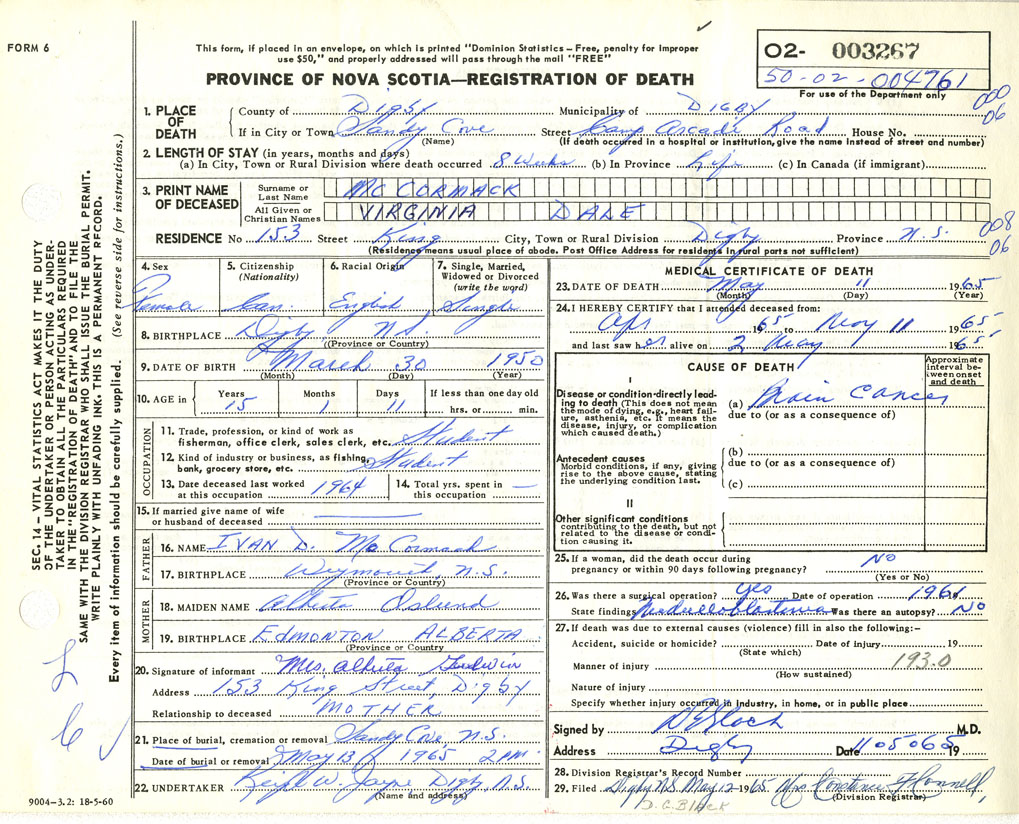 FORM 6
This form, if placed in an envelope, on which is printed "Dominion Statistics – Free, penalty for improper
use $50," and properly addressed will pass through the mail "FREE"
PROVINCE OF NOVA SCOTIA—REGISTRATION OF DEATH
O2- 003267
50-02-004761
For use of the Department only
000
06
1. PLACE OF DEATH
County of Digby Municipality of DIGBY
If in City or Town Sandy Cove Street Camp Arcade Road House No.
(Name) (If death occurred in a hospital or institution, give the name instead of street and number)
2. LENGTH OF STAY (in years, months and days)
(a) In City, Town or Rural Division where death occurred 8 Weeks (b) In Province Life (c) In Canada (if immigrant)
3. PRINT NAME OF DECEASED
Surname or Last Name MC CORMACK
All Given or Christian Names VIRGINIA DALE
008
06
RESIDENCE No 153 Street King City, Town or Rural Division Digby Province N.S.
(Residence means usual place of abode. Post Office Address for residents in rural parts not sufficient)
4. Sex Female
5. Citizenship (Nationality) Can.
6. Racial Origin English
7. Single, Married, Widowed or Divorced (write the word) Single
8. BIRTHPLACE Digby N.S.
(Province or Country)
9. DATE OF BIRTH March 30 1950
(Month) (Day) (Year)
10. AGE in Years 15 Months 1 Days 11 If less than one day old hrs. or min.
OCCUPATION
11. Trade, profession, or kind of work as
fisherman, office clerk, sales clerk, etc. Student
12. Kind of industry or business, as fishing,
bank, grocery store, etc. Student
13. Date deceased last worked at this occupation 1964
14. Total yrs. spent in this occupation —
15. If married give name of wife
or husband of deceased
FATHER
16. NAME IVAN D. McCormack
17. BIRTHPLACE Weymouth, N.S.
(Province or Country)
MOTHER
18. MAIDEN NAME Alberta Oslund
19. BIRTHPLACE EDMONTON ALBERTA
(Province or Country)
20. Signature of informant Mrs. Alberta
Address 153 King Street, Digby
Relationship to deceased MOTHER
21. Place of burial, cremation or removal Sandy Cove, N.S.
Date of burial or removal May 13 1965 2 PM.
22. UNDERTAKER W. Jayne Digby N.S.
(Name and address)
MEDICAL CERTIFICATE OF DEATH
23. DATE OF DEATH May 11 1965
(Month) (Day) (Year)
24. I HEREBY CERTIFY that I attended deceased from:
Apr 1965 to May 11 1965
and last saw her alive on 2 May 1965
CAUSE OF DEATH
Approximate interval between onset and death
I
Disease or condition directly leading to death (This does not mean the mode of dying, e.g., heart failure, asthenia, etc. It means the disease, injury, or complication which caused death.)
(a) Brain Cancer
due to (or as a consequence of)
Antecedent causes
Morbid conditions, if any, giving rise to the above cause, stating the underlying condition last.
(b)
due to (or as a consequence of)
(c)
II
Other significant conditions
contributing to the death, but not related to the disease or condition causing it.
25. If a woman, did the death occur during
pregnancy or within 90 days following pregnancy? NO
(Yes or No)
26. Was there a surgical operation? yes Date of operation 1961
State findings Medulloblastoma Was there an autopsy? NO
27. If death was due to external causes (violence) fill in also the following:—
Accident, suicide or homicide? Date of injury 19
(State which)
Manner of injury 193.0
(How sustained)
Nature of injury
Specify whether injury occurred in industry, in home, or in public place
Signed by D G Black M.D.
Address Digby Date 110506519
28. Division Registrar's Record Number
29. Filed Digby N.S. May 12 1965 Mrs Constance
D.G. Black (Division Registrar)
9004–3.2: 18-5-60
SEC. 14 – VITAL STATISTICS ACT MAKES IT THE DUTY
OF THE UNDERTAKER OR PERSON ACTING AS UNDER-
TAKER TO OBTAIN ALL THE PARTICULARS REQUIRED
IN THE "REGISTRATION OF DEATH" AND TO FILE THE
SAME WITH THE DIVISION REGISTRAR WHO SHALL ISSUE THE BURIAL PERMIT.
WRITE PLAINLY WITH UNFADING INK. THIS IS A PERMANENT RECORD.
Every item of information should be carefully supplied. (See reverse side for instructions.)